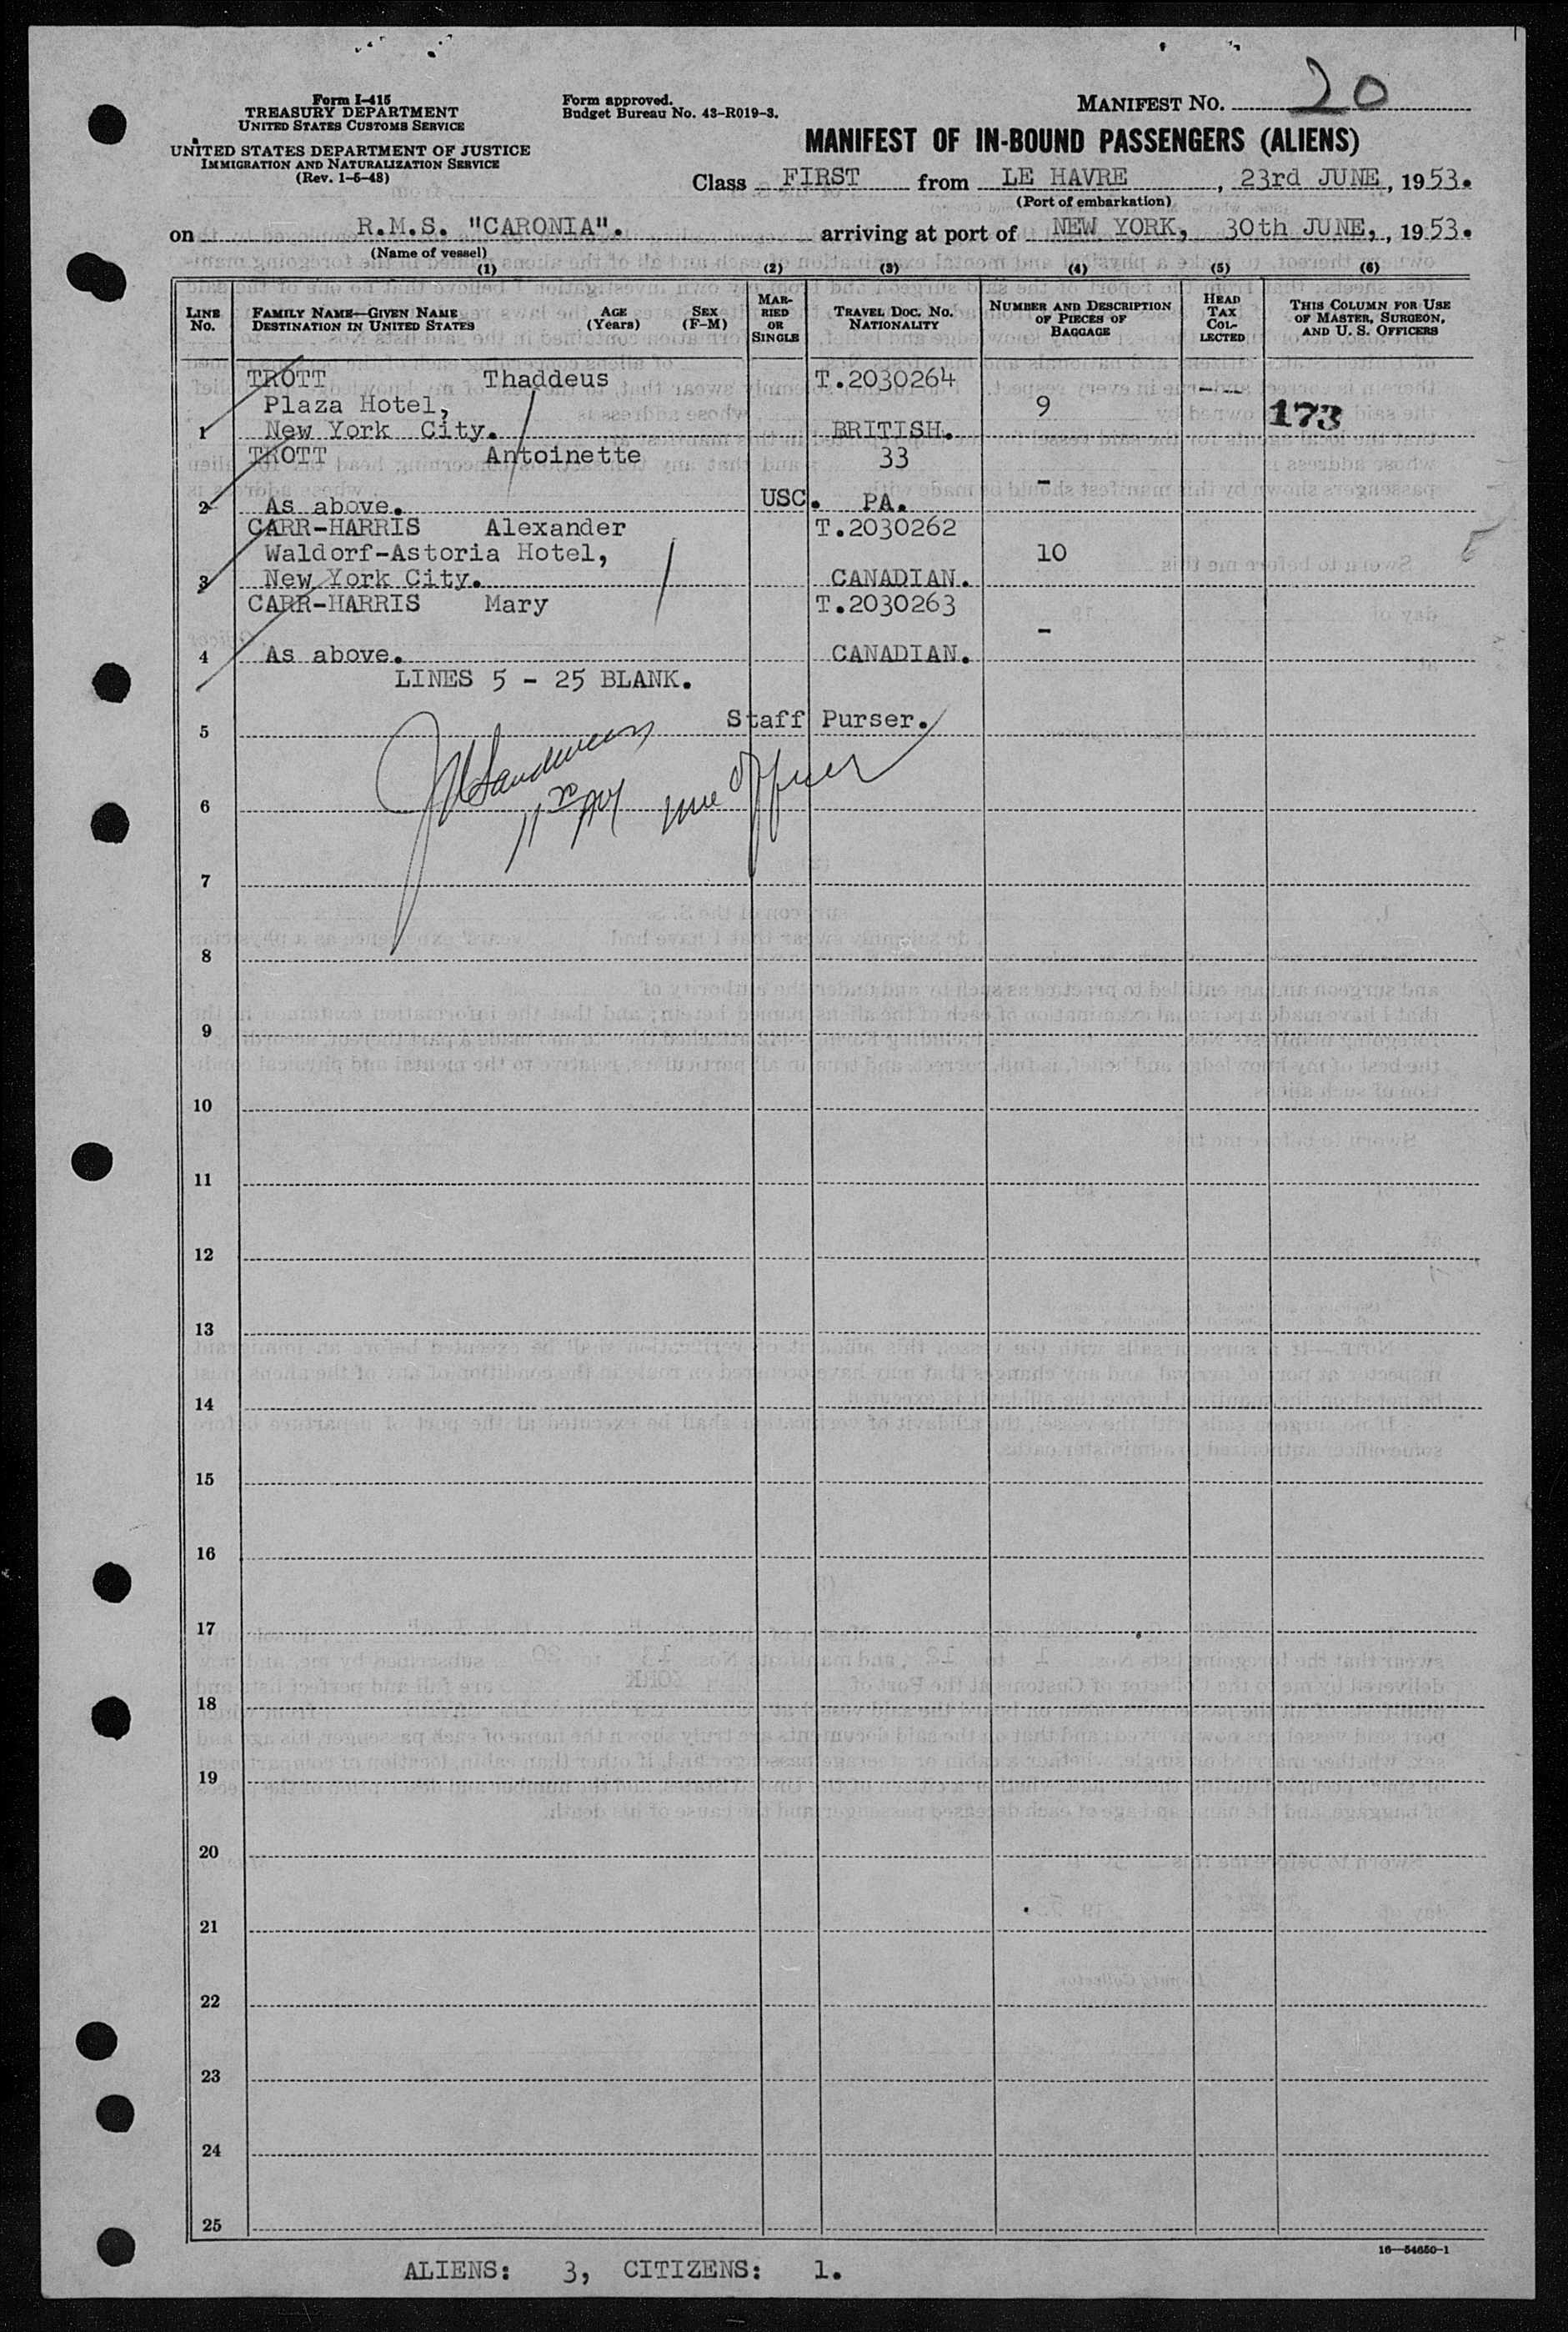 Form I-415
TREASURY DEPARTMENT
UNITED STATES CUSTOMS SERVICE
UNITED STATES DEPARTMENT OF JUSTICE
IMMIGRATION AND NATURALIZATION SERVICE
(Rev. 1-6-48)
Form approved.
Budget Bureau No. 43-R019-3.
MANIFEST NO. 20
MANIFEST OF IN-BOUND PASSENGERS (ALIENS)
Class FIRST from LE HAVRE, 23rd JUNE, 1953.
(Port of embarkation)
on R.M.S. "CARONIA". arriving at port of NEW YORK, 30th JUNE, , 1953.
(Name of vessel)
(1) (2) (3) (4) (5) (6)
LINE No.
FAMILY NAME—GIVEN NAME
DESTINATION IN UNITED STATES
AGE (Years)
SEX (F-M)
MARRIED OR SINGLE
TRAVEL DOC. NO.
NATIONALITY
NUMBER AND DESCRIPTION OF PIECES OF BAGGAGE
HEAD TAX COLLECTED
THIS COLUMN FOR USE OF MASTER, SURGEON, AND U. S. OFFICERS
TROTT Thaddeus T.2030264 - -
Plaza Hotel, 9 173
1 New York City. BRITISH.
TROTT Antoinette 33
-
2 As above. USC. PA.
CARR-HARRIS Alexander T.2030262
Waldorf-Astoria Hotel, 10
3 New York City. CANADIAN.
CARR-HARRIS Mary T.2030263
-
4 As above. CANADIAN.
LINES 5 - 25 BLANK.
Staff Purser.
5
Officer
6
7
8
9
10
11
12
13
14
15
16
17
18
19
20
21
22
23
24
25
16—54650-1
ALIENS: 3, CITIZENS: 1.